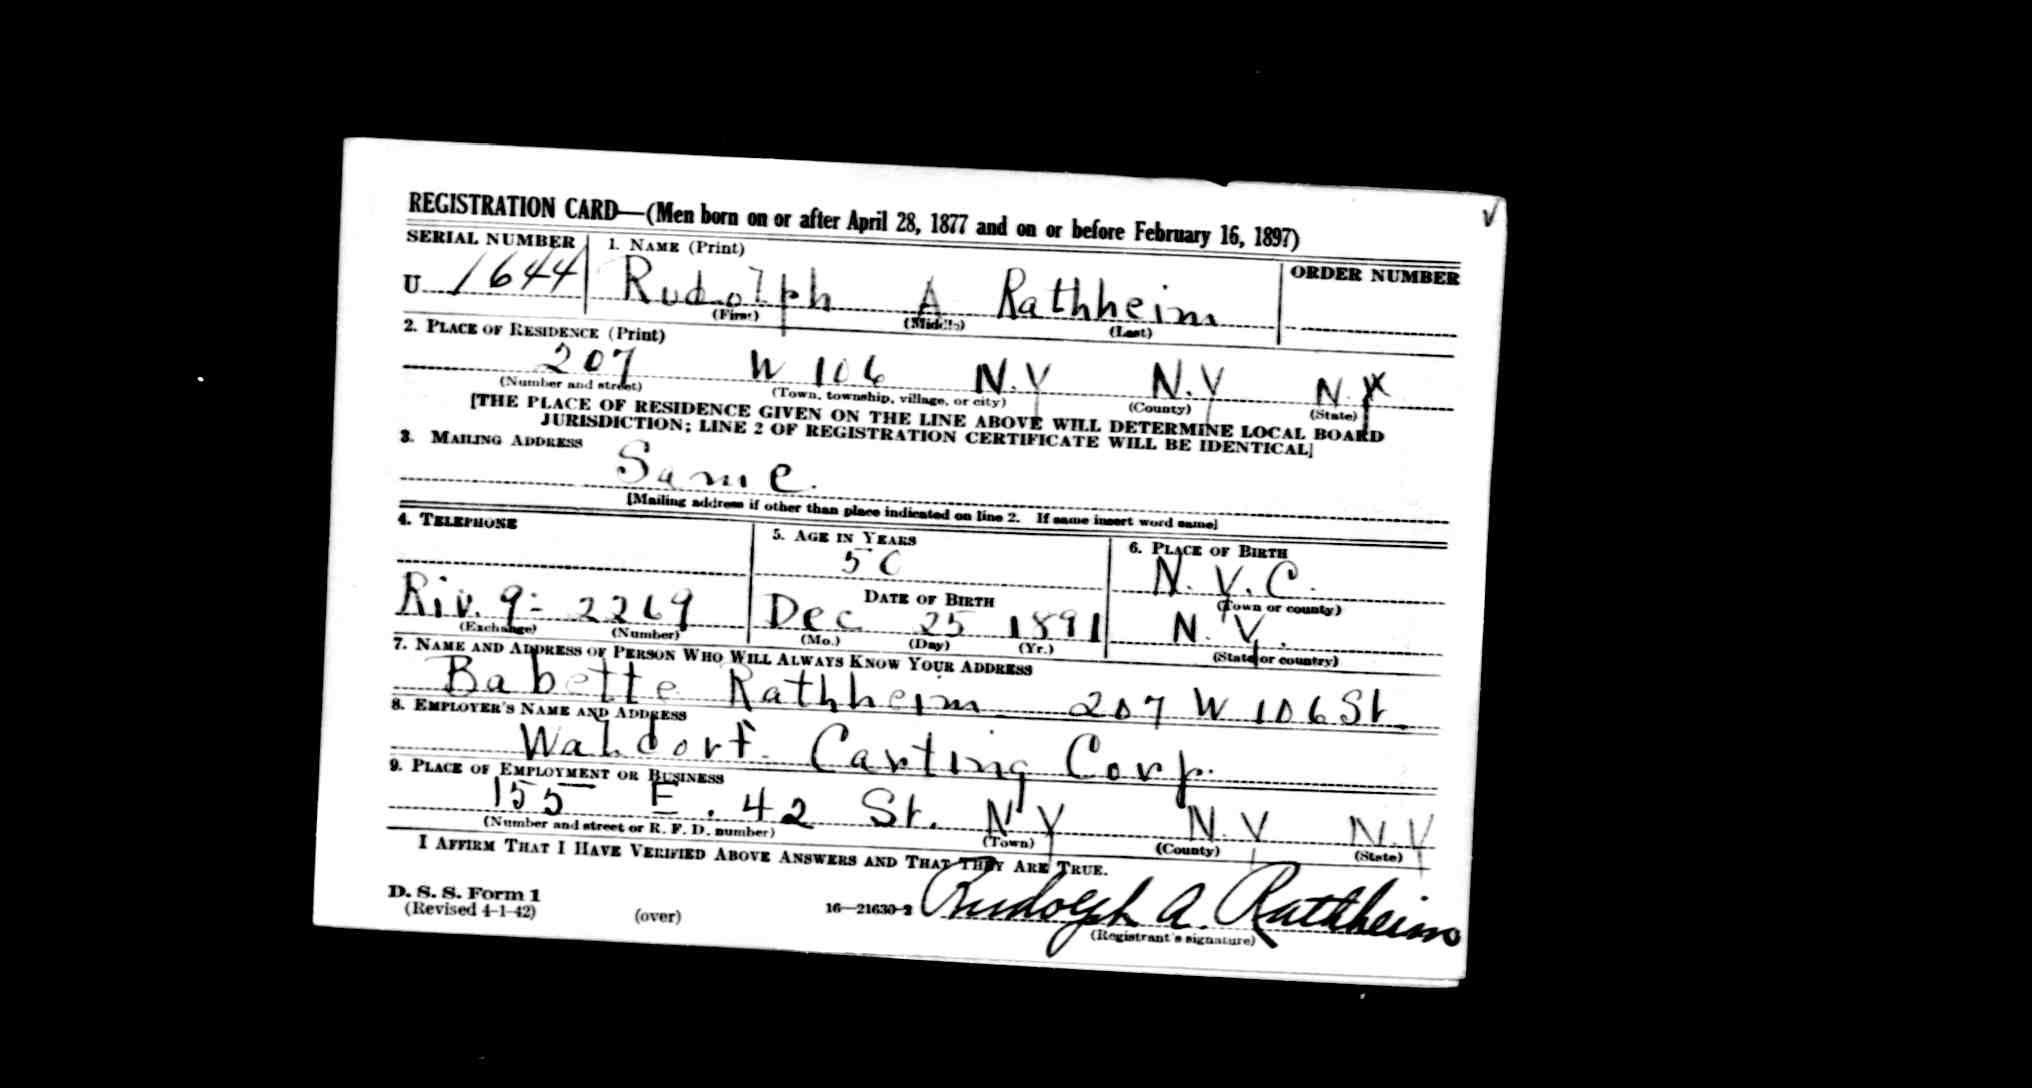 REGISTRATION CARD—(Men born on or after April 28, 1877 and on or before February 16, 1897)
SERIAL NUMBER 1. NAME (Print) ORDER NUMBER
U 1644 Rudolph A Rathheim
(First) (Middle) (Last)
2. PLACE OF RESIDENCE (Print)
207 W 106 N.Y N.Y N.Y
(Number and street) (Town, township, village, or city) (County) (State)
[THE PLACE OF RESIDENCE GIVEN ON THE LINE ABOVE WILL DETERMINE LOCAL BOARD
JURISDICTION; LINE 2 OF REGISTRATION CERTIFICATE WILL BE IDENTICAL]
3. MAILING ADDRESS
Same.
[Mailing address if other than place indicated on line 2. If same insert word same]
4. TELEPHONE 5. AGE IN YEARS 6. PLACE OF BIRTH
50 N.Y.C.
DATE OF BIRTH (Town or county)
Riv. 9- 2269 Dec 25 1891 N.Y.
(Exchange) (Number) (Mo.) (Day) (Yr.) (State or country)
7. NAME AND ADDRESS OF PERSON WHO WILL ALWAYS KNOW YOUR ADDRESS
Babette Rathheim 207 W 106 St.
8. EMPLOYER'S NAME AND ADDRESS
Waldorf Carting Corp.
9. PLACE OF EMPLOYMENT OR BUSINESS
155 E. 42 St. N Y N.Y N.Y
(Number and street or R. F. D. number) (Town) (County) (State)
I AFFIRM THAT I HAVE VERIFIED ABOVE ANSWERS AND THAT THEY ARE TRUE.
D. S. S. Form 1
(Revised 4-1-42) (over) 16—21630-2 Rudolph A. Rathheim
(Registrant's signature)